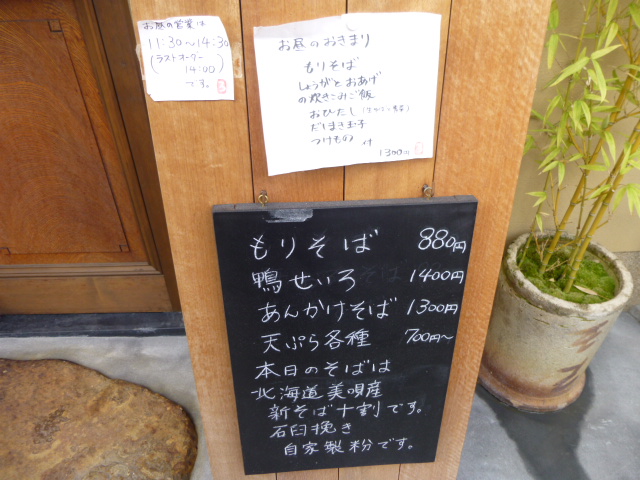 お昼の営業は
11:30～14:30
(ラストオーダー
14:00)
です。
お昼のおきまり
もりそば
しょうがとおあげ
の炊きこみご飯
おひたし
だしまき玉子
つけもの 付
1300円
もりそば 880円
鴨せいろ 1400円
あんかけそば 1300円
天ぷら各種 700円～
本日のそばは
北海道美唄産
新そば十割です。
石臼挽き
自家製粉です。